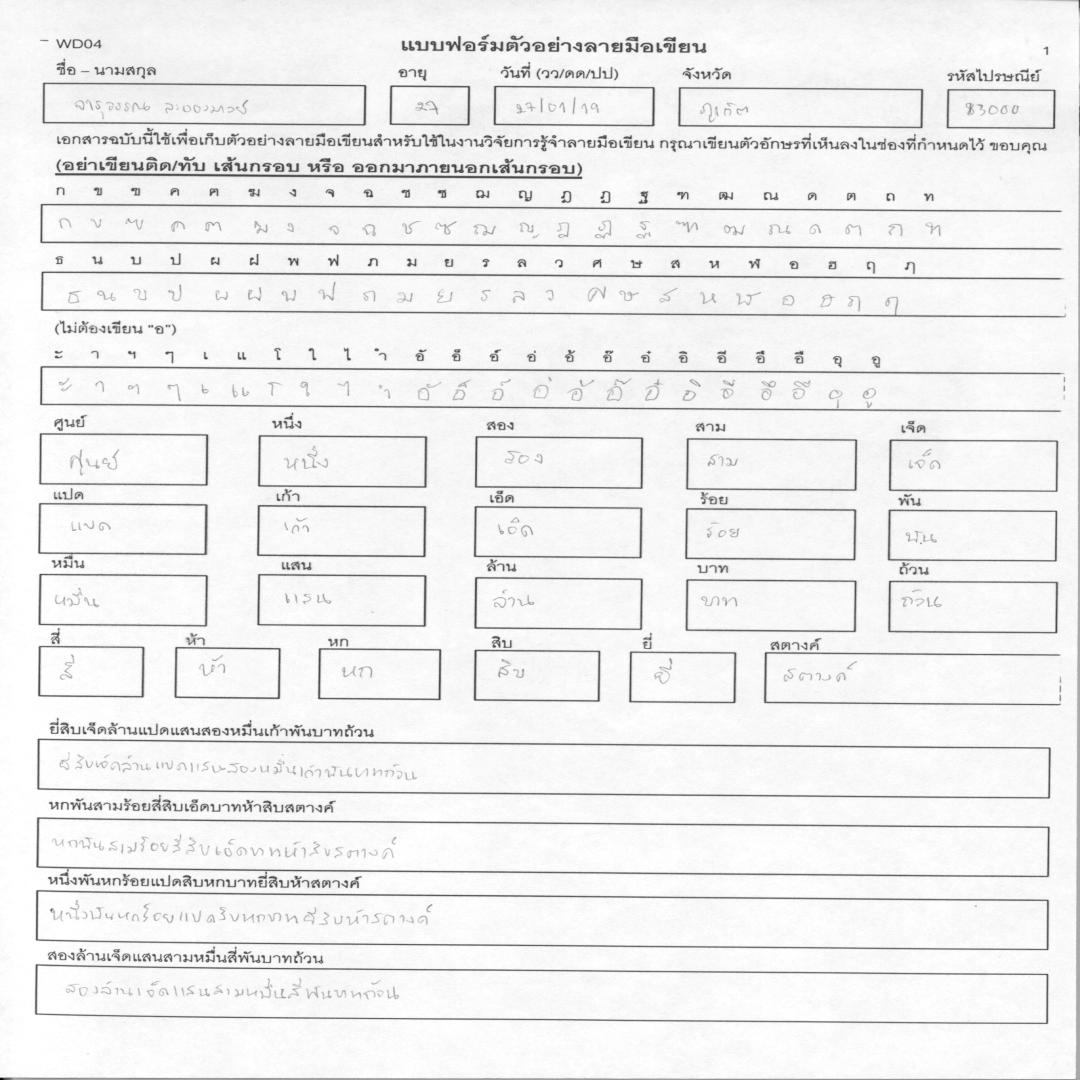 WD04 แบบฟอร์มตัวอย่างลายมือเขียน 1
ชื่อ – นามสกุล อายุ วันที่ (วว/ดด/ปป) จังหวัด รหัสไปรษณีย์
จารุวรรณ 27 27/01/19 ภูเก็ต 83000
เอกสารฉบับนี้ใช้เพื่อเก็บตัวอย่างลายมือเขียนสำหรับใช้ในงานวิจัยการรู้จำลายมือเขียน กรุณาเขียนตัวอักษรที่เห็นลงในช่องที่กำหนดไว้ ขอบคุณ
(อย่าเขียนติด/ทับ เส้นกรอบ หรือ ออกมาภายนอกเส้นกรอบ)
ก ข ฃ ค ฅ ฆ ง จ ฉ ช ซ ฌ ญ ฎ ฏ ฐ ฑ ฒ ณ ด ต ถ ท
ก ข ฃ ค ฅ ฆ ง จ ฉ ช ซ ฌ ญ ฎ ฏ ฐ ฑ ฒ ณ ด ต ถ ท
ธ น บ ป ผ ฝ พ ฟ ภ ม ย ร ล ว ศ ษ ส ห ฬ อ ฮ ฤ ฦ
ธ น บ ป ผ ฝ พ ฟ ภ ม ย ร ล ว ศ ษ ส ห ฬ อ ฮ ฤ ฦ
(ไม่ต้องเขียน “อ”)
ะ า ฯ ๆ เ แ โ ใ ไ ำ อั อ็ อ์ อ่ อ้ อ๊ อ๋ อิ อี อึ อื อุ อู
ะ า ฯ ๆ เ แ โ ใ ไ ำ อั อ็ อ์ อ่ อ้ อ๊ อ๋ อิ อี อึ อื อุ อู
ศูนย์ หนึ่ง สอง สาม เจ็ด
ศูนย์ หนึ่ง สอง สาม เจ็ด
แปด เก้า เอ็ด ร้อย พัน
แปด เก้า เอ็ด ร้อย พัน
หมื่น แสน ล้าน บาท ถ้วน
หมื่น แสน ล้าน บาท ถ้วน
สี่ ห้า หก สิบ ยี่ สตางค์
สี่ ห้า หก สิบ ยี่ สตางค์
ยี่สิบเจ็ดล้านแปดแสนสองหมื่นเก้าพันบาทถ้วน
ยี่สิบเจ็ดล้านแปดแสนสองหมื่นเก้าพันบาทถ้วน
หกพันสามร้อยสี่สิบเอ็ดบาทห้าสิบสตางค์
หกพันสามร้อยสี่สิบเอ็ดบาทห้าสิบสตางค์
หนึ่งพันหกร้อยแปดสิบหกบาทยี่สิบห้าสตางค์
หนึ่งพันหกร้อยแปดสิบหกบาทยี่สิบห้าสตางค์
สองล้านเจ็ดแสนสามหมื่นสี่พันบาทถ้วน
สองล้านเจ็ดแสนสามหมื่นสี่พันบาทถ้วน